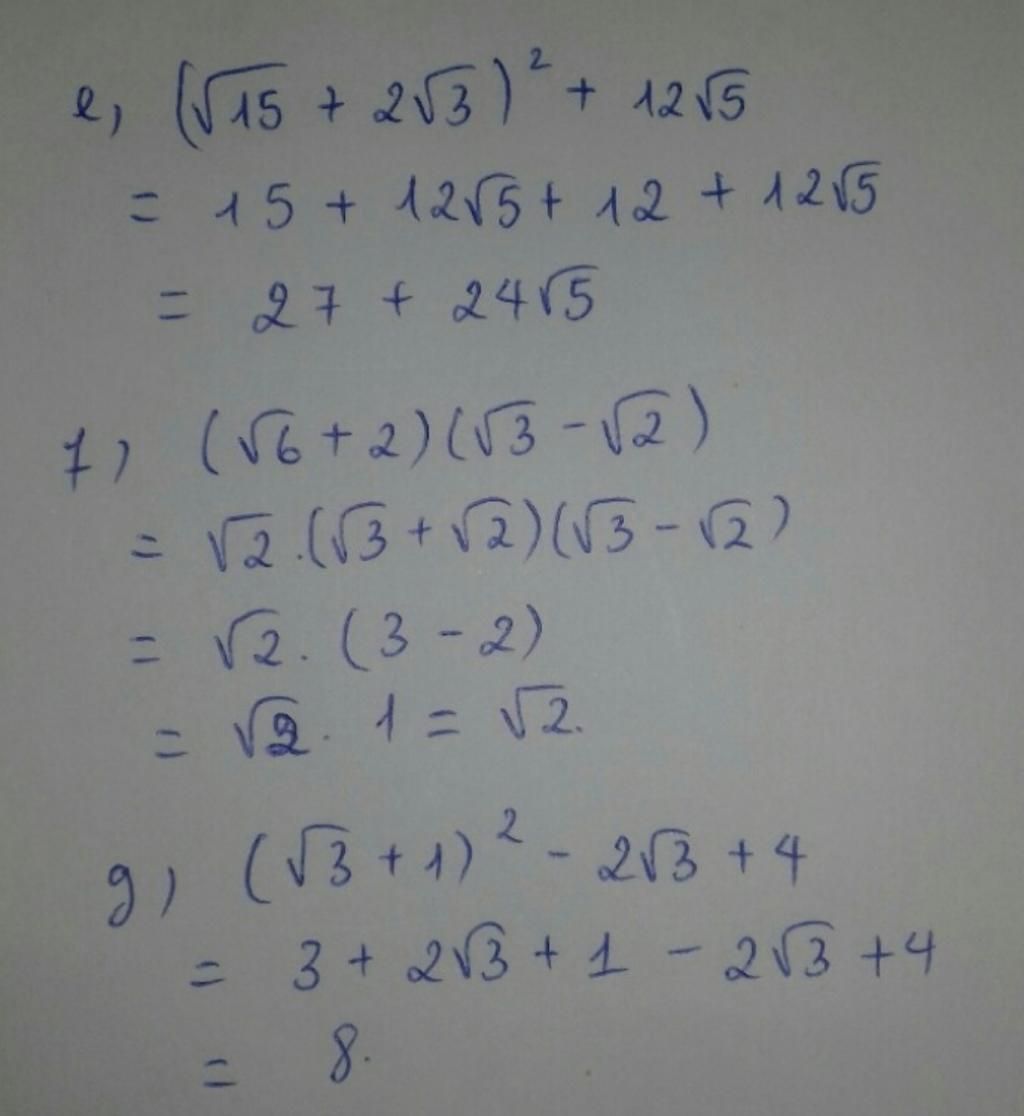 e, (√15 + 2√3)² + 12√5
= 15 + 12√5 + 12 + 12√5
= 27 + 24√5
f, (√6 + 2)(√3 - √2)
= √2.(√3 + √2)(√3 - √2)
= √2. (3 - 2)
= √2. 1 = √2.
g, (√3 + 1)² - 2√3 + 4
= 3 + 2√3 + 1 - 2√3 + 4
= 8.